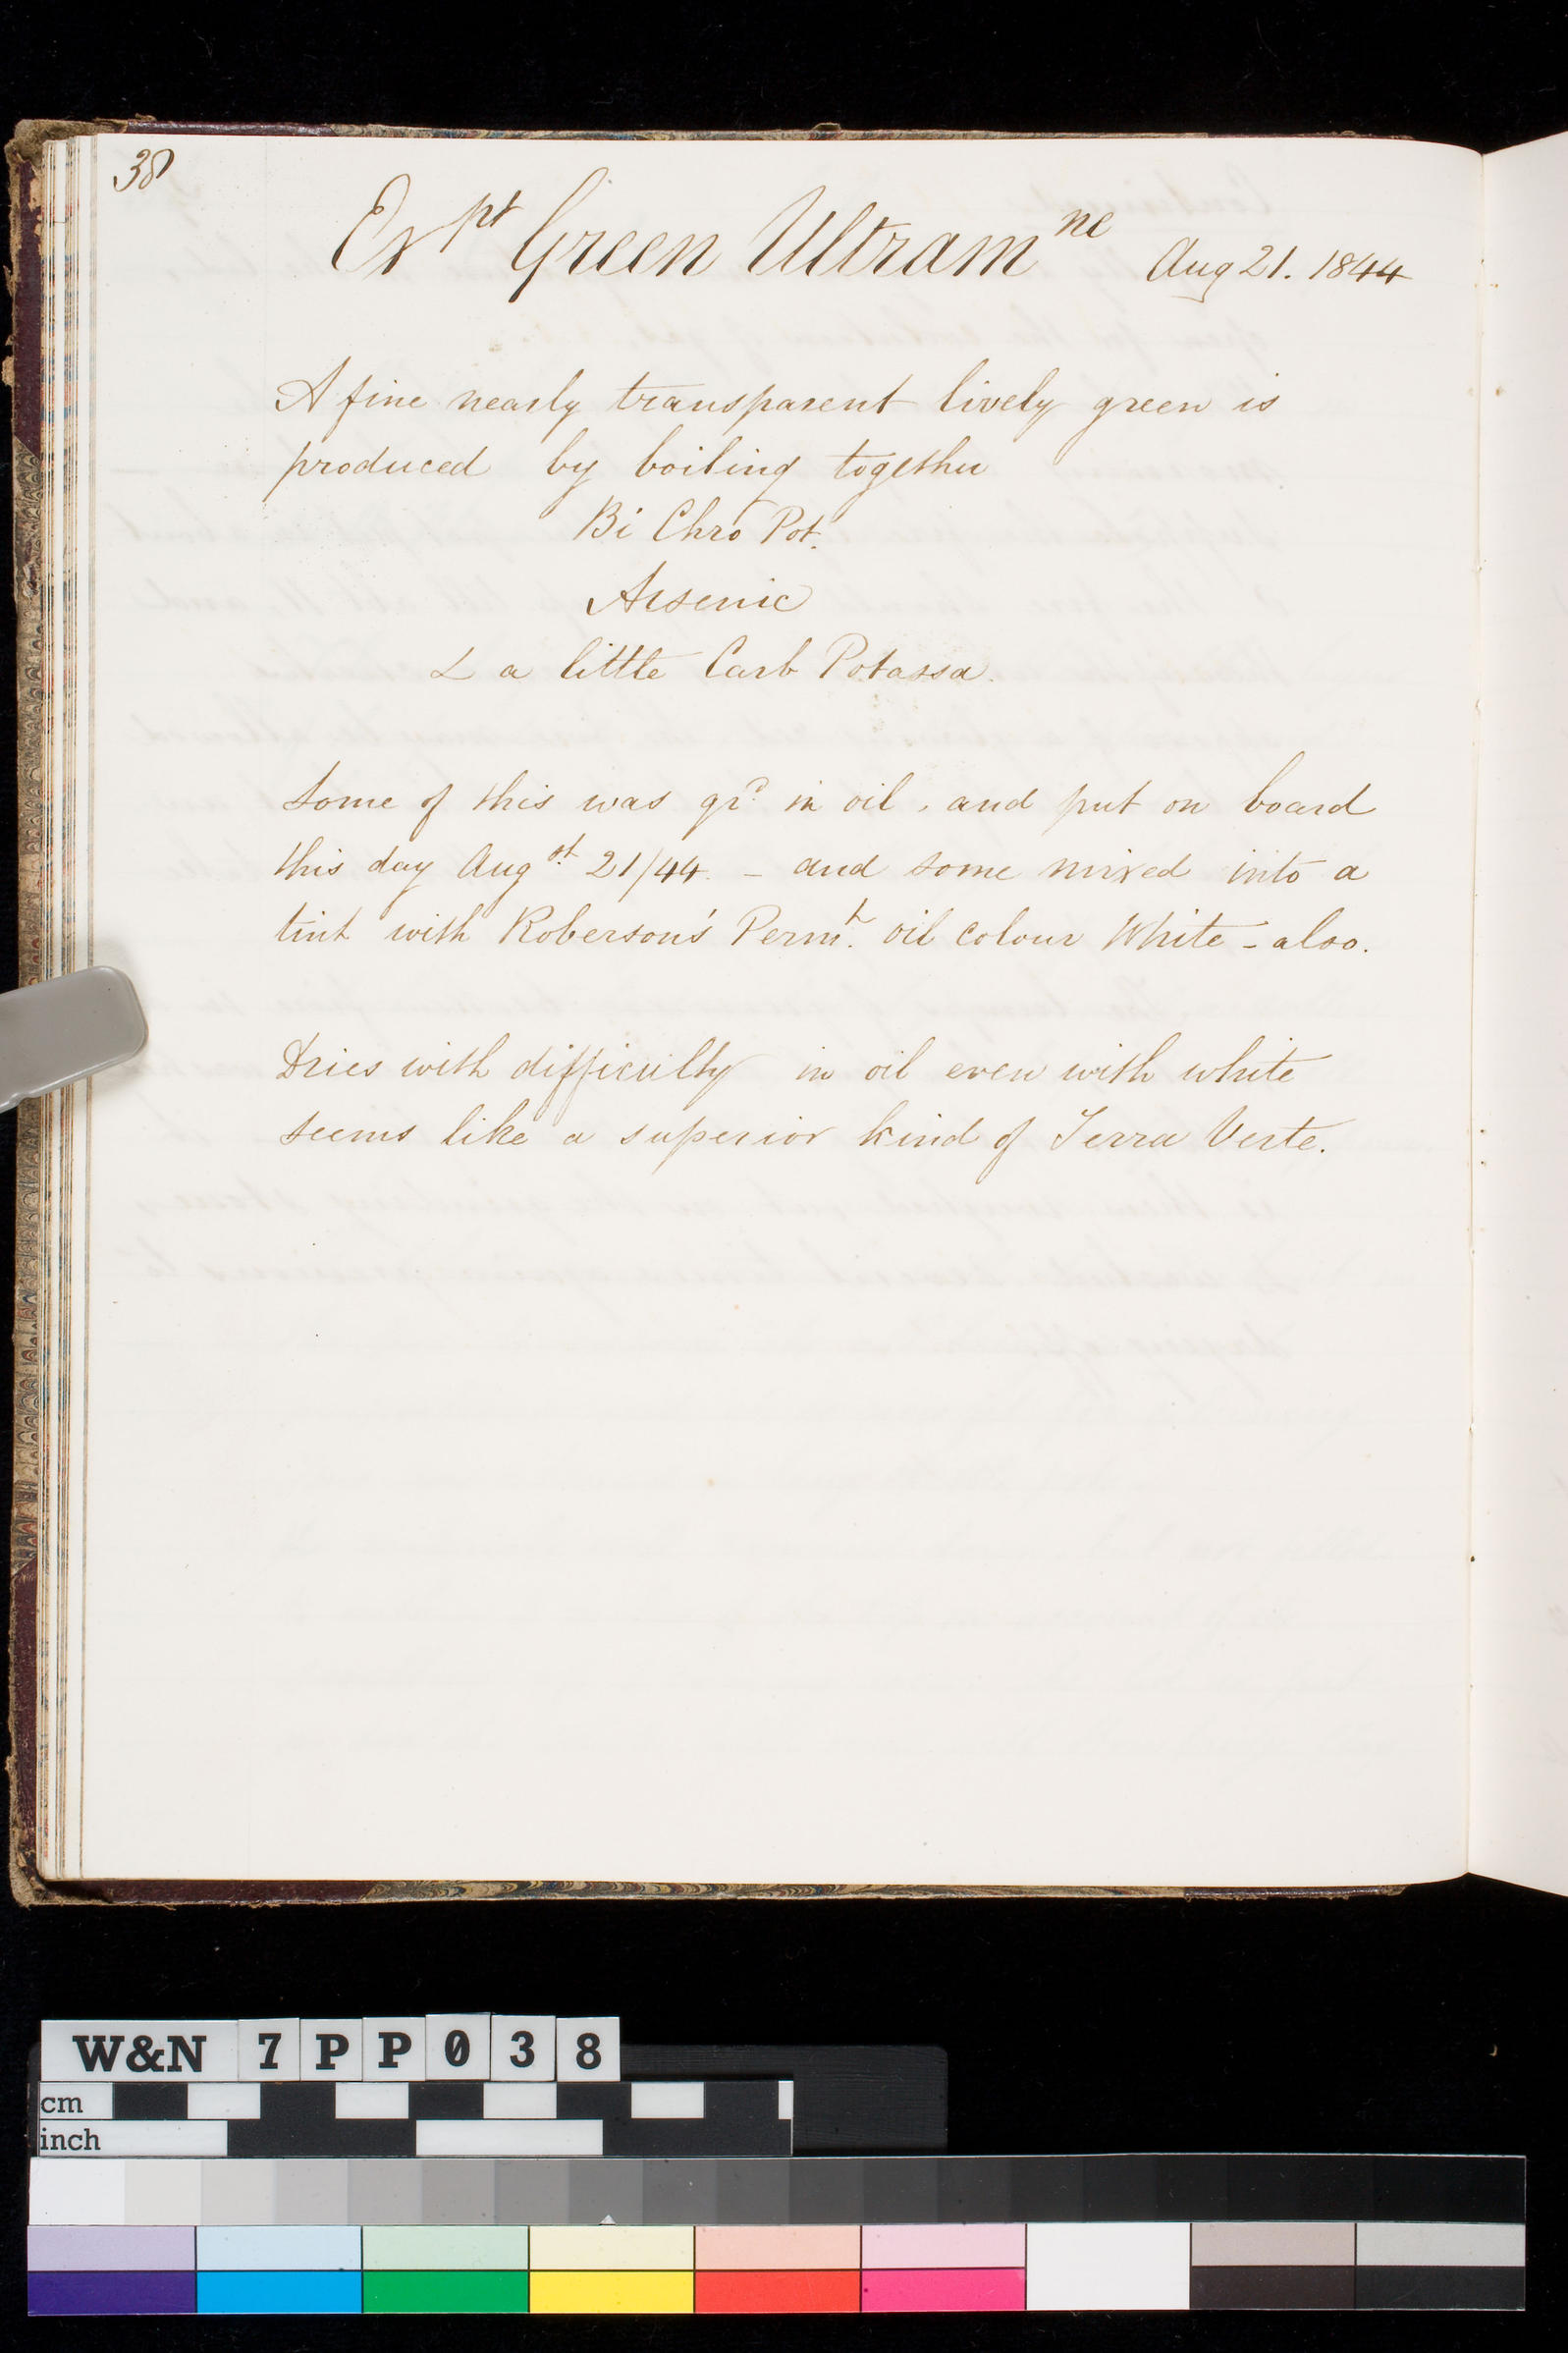 38
Expt Green Ultramne Aug 21. 1844
A fine nearly transparent lively green is
produced by boiling together
Bi Chro Pot.
Arsenic
& a little Carb Potassa.
Some of this was grd. in oil, and put on board
this day Augst. 21/44. - and some mixed into a
tint with Roberson's Permt. oil colour White - also.
Dries with difficulty in oil even with white
seems like a superior kind of Terra Verte.
W&N 7PP038
cm
inch